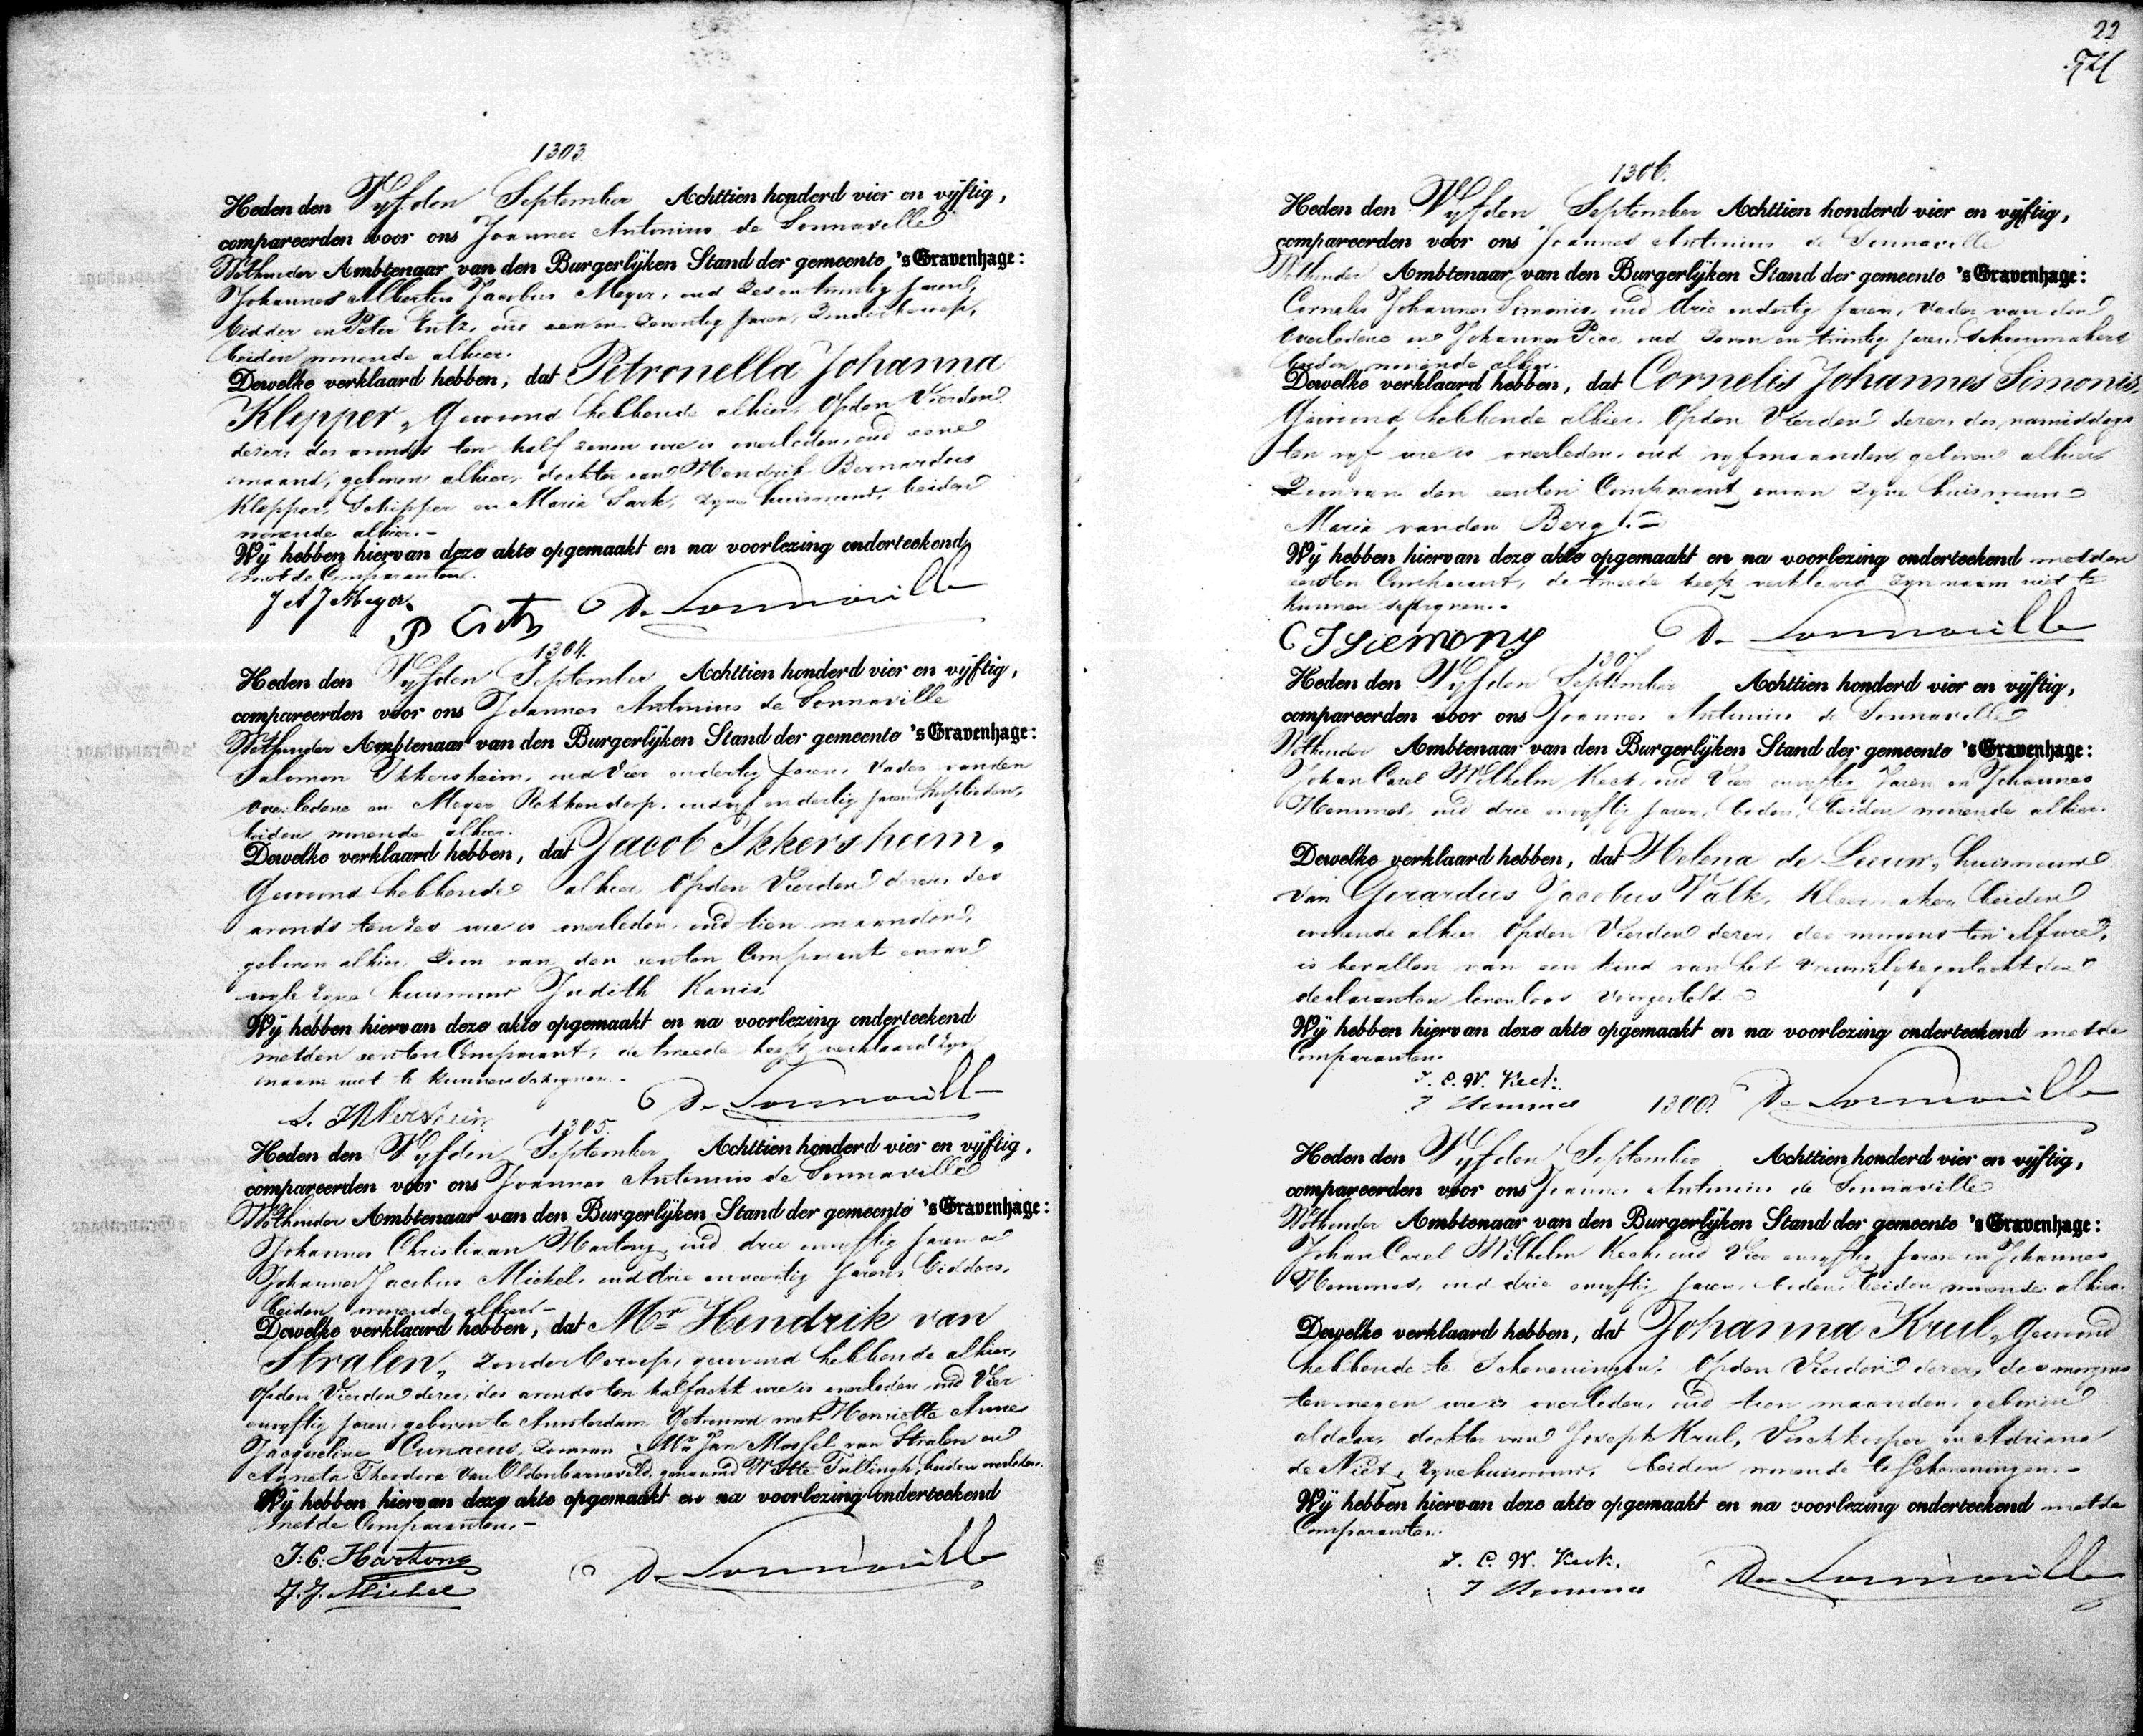 1303.
Heden den Vyfden September Achttien honderd vier en vijftig,
compareerden voor ons Joannes Antonius de Sonnaville
Wethouder Ambtenaar van den Burgerlijken Stand der gemeente 's Gravenhage:
Johannes Albertus Jacobus Meyer, oud zes en twintig jaren,
bidder en Peter Entz, oud een en zeventig jaren, zonder beroep,
beiden wonende alhier.
Dewelke verklaard hebben, dat Petronella Johanna
Klepper, gewoond hebbende alhier, op den Vierden
dezer, des avonds ten half zeven ure is overleden, oud eene
maand, geboren alhier, dochter van Hendrik Bernardus
Klepper, Schipper en Maria Sark, zyne huisvrouw, beiden
wonende alhier.-
Wij hebben hiervan deze akte opgemaakt en na voorlezing onderteekend
met de Comparanten.
J A J Meyer.
P Entz De Sonnaville
1304.
Heden den Vyfden September Achttien honderd vier en vijftig,
compareerden voor ons Joannes Antonius de Sonnaville
Wethouder Ambtenaar van den Burgerlijken Stand der gemeente 's Gravenhage:
Salomon Ikkersheim, oud vier en dertig jaren, vader van den
overledene en Meyer Rokkendorp, oud vyf en dertig jaren, Kooplieden,
beiden wonende alhier.
Dewelke verklaard hebben, dat Jacob Ikkersheim,
gewoond hebbende alhier op den Vierden dezer, des
avonds ten zes ure is overleden, oud tien maanden,
geboren alhier, Zoon van den eersten Comparant en van
zyne huisvrouw Judith Kanis.
Wij hebben hiervan deze akte opgemaakt en na voorlezing onderteekend
met den eersten Comparant, de tweede heeft verklaard zyn
naam niet te kunnen schryven.-
S. Ikkersheim De Sonnaville
1305.
Heden den Vyfden September Achttien honderd vier en vijftig,
compareerden voor ons Joannes Antonius de Sonnaville
Wethouder Ambtenaar van den Burgerlijken Stand der gemeente 's Gravenhage:
Johannes Christiaan Hartong, oud drie en vyftig jaren en
Johannes Jacobus Michel, oud drie en veertig jaren, bidders,
beiden wonende alhier.-
Dewelke verklaard hebben, dat Mr Hendrik van
Stralen, zonder beroep, gewoond hebbende alhier,
op den Vierden dezer, des avonds ten half acht ure is overleden, oud vier
en vyftig jaren, geboren te Amsterdam, getrouwd met Henriette Anne
Jacqueline Cunaeus, zoon van Mr Jan Mossel van Stralen en
Agneta Theodora van Oldenbarneveld, genaamd Witte Tullingh, beiden overleden.
Wij hebben hiervan deze akte opgemaakt en na voorlezing onderteekend
met de Comparanten.-
J: C: Hartong
J. J. Michel De Sonnaville
22
1306.
Heden den Vyfden September Achttien honderd vier en vijftig,
compareerden voor ons Joannes Antonius de Sonnaville
Wethouder Ambtenaar van den Burgerlijken Stand der gemeente 's Gravenhage:
Cornelis Johannes Simonis, oud drie en dertig jaren, vader van den
overledene en Johannes oud zeven en twintig jaren, Schoenmakers
beiden wonende alhier.
Dewelke verklaard hebben, dat Cornelis Johannes Simonis,
gewoond hebbende alhier, op den Vierden dezer, des namiddags
ten vyf ure is overleden, oud vyf maanden, geboren alhier,
Zoon van den eersten Comparant en van zyne huisvrouw
Maria van den Berg.
Wij hebben hiervan deze akte opgemaakt en na voorlezing onderteekend met den
eersten Comparant, de tweede heeft verklaard zyn naam niet te
kunnen schryven.-
C J Siemony De Sonnaville
1307
Heden den Vyfden September Achttien honderd vier en vijftig,
compareerden voor ons Joannes Antonius de Sonnaville
Wethouder Ambtenaar van den Burgerlijken Stand der gemeente 's Gravenhage:
Johan Carel Wilhelm Keck, oud vier en vyftig jaren en Johannes
Hemmes, oud drie en vyftig jaren, boden, beiden wonende alhier.
Dewelke verklaard hebben, dat Helena de Leeuw, huisvrouw
van Gerardus Jacobus Valk, Kleermaker, beiden
wonende alhier op den Vierden dezer, des morgens ten elf ure,
is bevallen van een kind van het vrouwelyke geslacht den
declaranten levenloos voorgesteld.
Wij hebben hiervan deze akte opgemaakt en na voorlezing onderteekend met de
Comparanten.
J. C. W. Keck.
J Hemmes 1308. De Sonnaville
Heden den Vyfden September Achttien honderd vier en vijftig,
compareerden voor ons Joannes Antonius de Sonnaville
Wethouder Ambtenaar van den Burgerlijken Stand der gemeente 's Gravenhage:
Johan Carel Wilhelm Keck, oud vier en vyftig jaren en Johannes
Hemmes, oud drie en vyftig jaren, boden, beiden wonende alhier.
Dewelke verklaard hebben, dat Johanna Krul, gewoond
hebbende te Scheveningen, op den Vierden dezer, des morgens
ten negen ure is overleden, oud tien maanden, geboren
aldaar, dochter van Joseph Krul, Vischkooper en Adriana
de Niet, zyne huisvrouw, beiden wonende te Scheveningen.-
Wij hebben hiervan deze akte opgemaakt en na voorlezing onderteekend met de
Comparanten.
J. C. W. Keck.
J Hemmes De Sonnaville